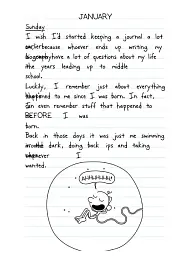 JANUARY
Sunday
I wish I'd started keeping a journal a lot
because whoever ends up writing my
have a lot of questions about my life
the years leading up to middle
school.
Luckily, I remember just about everything
to me since I was born. In fact,
I can even remember stuff that happened to
BEFORE I was
born.
Back in those days it was just me swimming
dark, doing back flips and taking
whenever I
wanted.